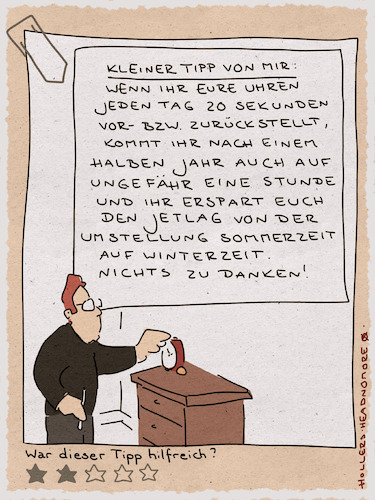 KLEINER TIPP VON MIR:
WENN IHR EURE UHREN
JEDEN TAG 20 SEKUNDEN
VOR- BZW. ZURÜCKSTELLT,
KOMMT IHR NACH EINEM
HALBEN JAHR AUCH AUF
UNGEFÄHR EINE STUNDE
UND IHR ERSPART EUCH
DEN JETLAG VON DER
UMSTELLUNG SOMMERZEIT
AUF WINTERZEIT.
NICHTS ZU DANKEN!
HOLLERS-HEADNOMORE
War dieser Tipp hilfreich?